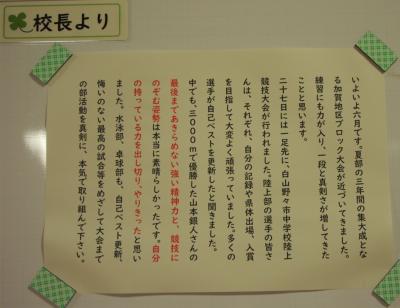 校長より
いよいよ六月です。夏部の三年間の集大成とな
る加賀地区ブロック大会が近づいてきました。
練習にも力が入り、一段と真剣さが増してきた
ことと思います。
二十七日には一足先に、白山野々市中学校陸上
競技大会が行われました。陸上部の選手の皆さ
んは、それぞれ、自分の記録や県体出場、入賞
を目指して大変よく頑張っていました。多くの
選手が自己ベストを更新したと聞きました。
中でも、三〇〇〇mで優勝した山本銀人さんの
最後まであきらめない強い精神力と、競技に
のぞむ姿勢は本当に素晴らしかったです。自分
の持っている力を出し切り、やりきったと思い
ました。水泳部、卓球部も、自己ベスト更新、
悔いのない最高の試合等をめざして大会まで
の部活動を真剣に、本気で取り組んで下さい。